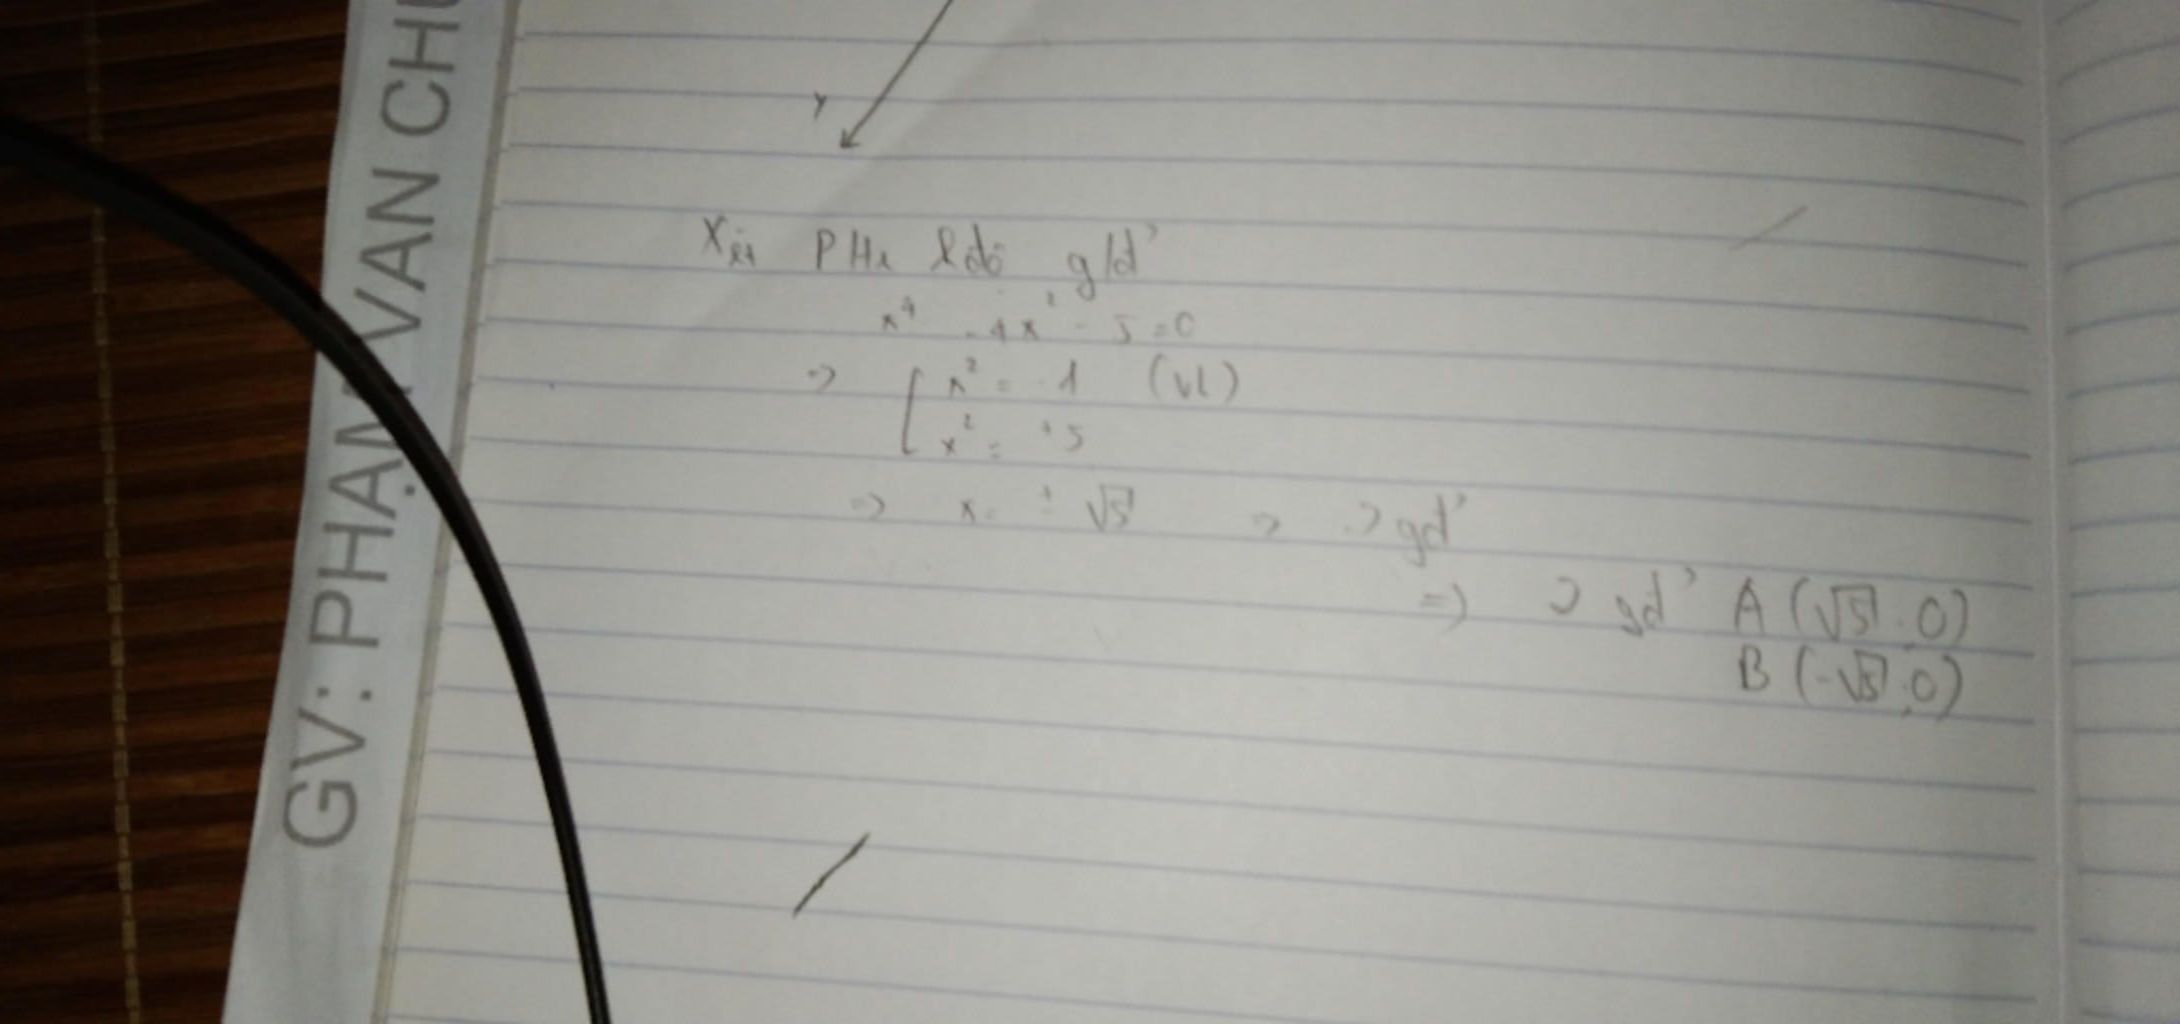 GV: PHẠM VĂN CHU
Y
Xét PHt hđộ gđ'
x⁴ - 4x² - 5 = 0
=> [ x² = -1 (vl)
x² = +5
=> x = ± √5 => 2 gđ'
=> 2 gđ' A (√5 ; 0)
B (-√5 ; 0)